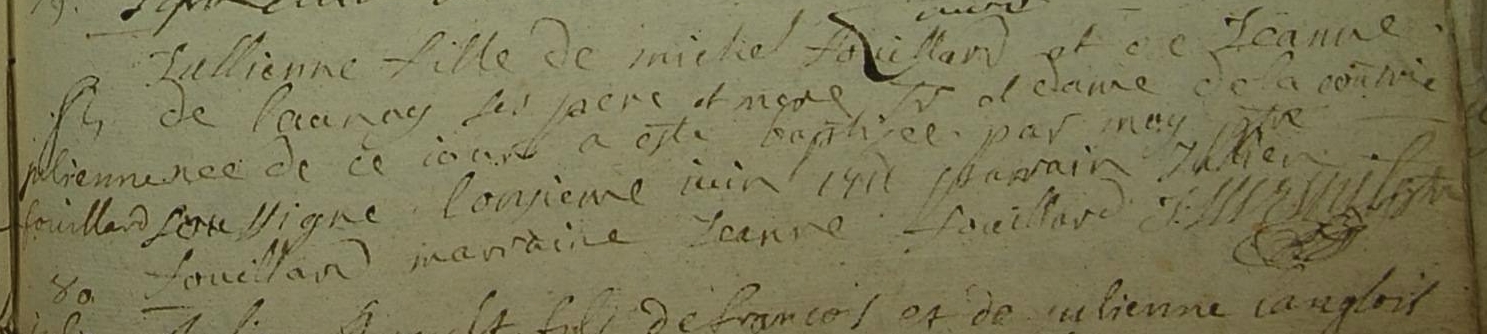 Jullienne fille de michel fouillard et de Jeanne
de launay ses pere et mere Sr et dame de la
julienne nee de ce iour a esté baptisee par moy ptre
fouillard soussigné lonsieme iuin parrain Jullien
80 fouillard marraine Jeanne fouillard
fils de francois et de julienne langlois